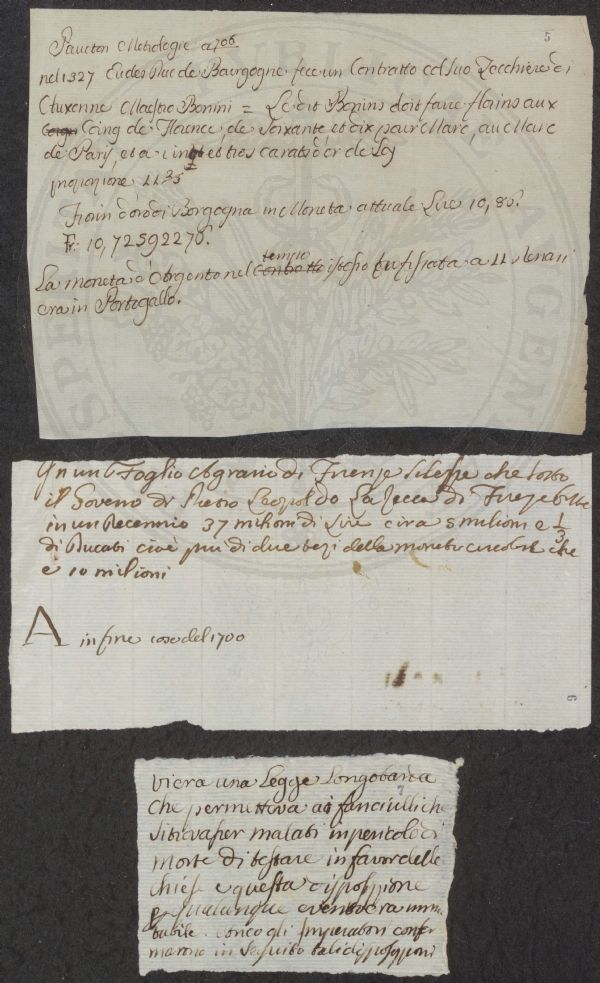 5
Paucton Metrologie a 706
nel 1327 Eudes Duc de Bourgogne fece un Contratto col suo Zecchiere di
Auxonne Maestro Bonini = Le dit Bonins doit faire flains aux
Coing de Florence, de Soixante et dix pour Marc, au Marc
de Paris, et a vingt et trois carats d'or de Ley
inquizione 23
Fiorin d'oro di Borgogna in Moneta attuale Lire 10,80.
Fr: 10,72592270.
tempo
La moneta d'Argento nel istesso fu fissata a 11 denari
era in Portogallo.
In un Foglio Agrario di Firenze si lesse che sotto
il Governo di Pietro Leopoldo La Zecca di Firenze
in un Decennio 37 milioni di Lire circa 5 milioni e 1/3
di Ducati cioè più di due terzi della moneta che
è 10 milioni
A in fine cose del 1700
6
7
Vi era una Legge Longobarda
che permetteva ai fanciulli che
si trovasser malati in pericolo di
morte di testare in favor delle
chiese e questa disposizione
qualunque evento era immu
tabile. Conco gli Imperatori confer
marono in seguito tali disposizioni